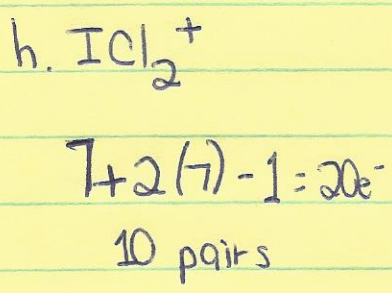 h. ICl₂⁺
7+2(7)-1=20e⁻
10 pairs